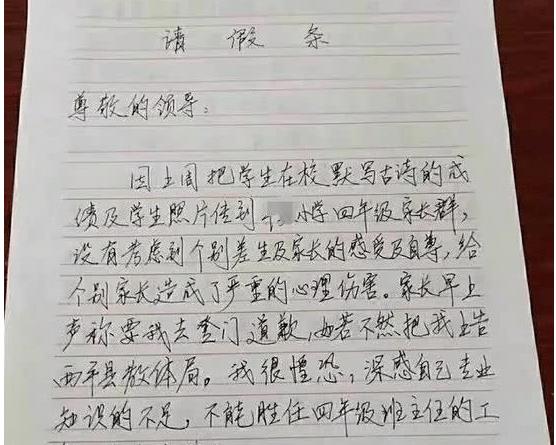 请假条
尊敬的领导：
因上周把学生在校默写古诗的成
绩及学生照片传到小学四年级家长群，
没有考虑到个别差生及家长的感受及自尊，给
个别家长造成了严重的心理伤害。家长早上
声称要我去登门道歉，如若不然把我上告
西平县教体局。我很惶恐，深感自己专业
知识的不足，不能胜任四年级班主任的工